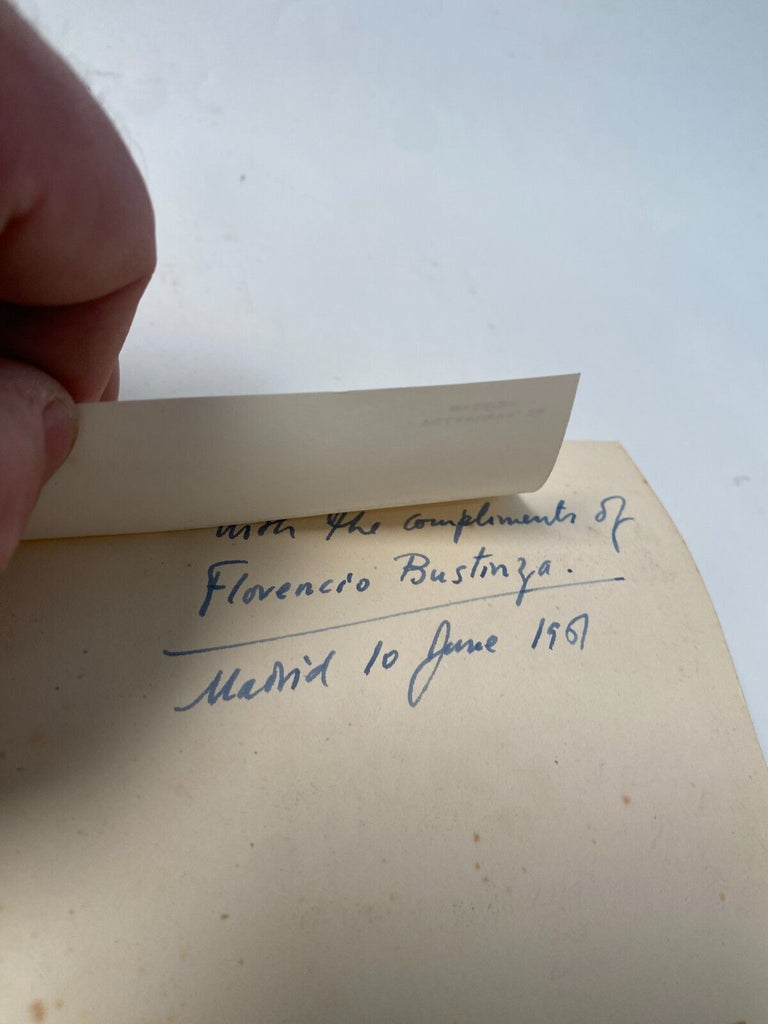 with the compliments of
Florencio Bustinza.
Madrid 10 June 1961